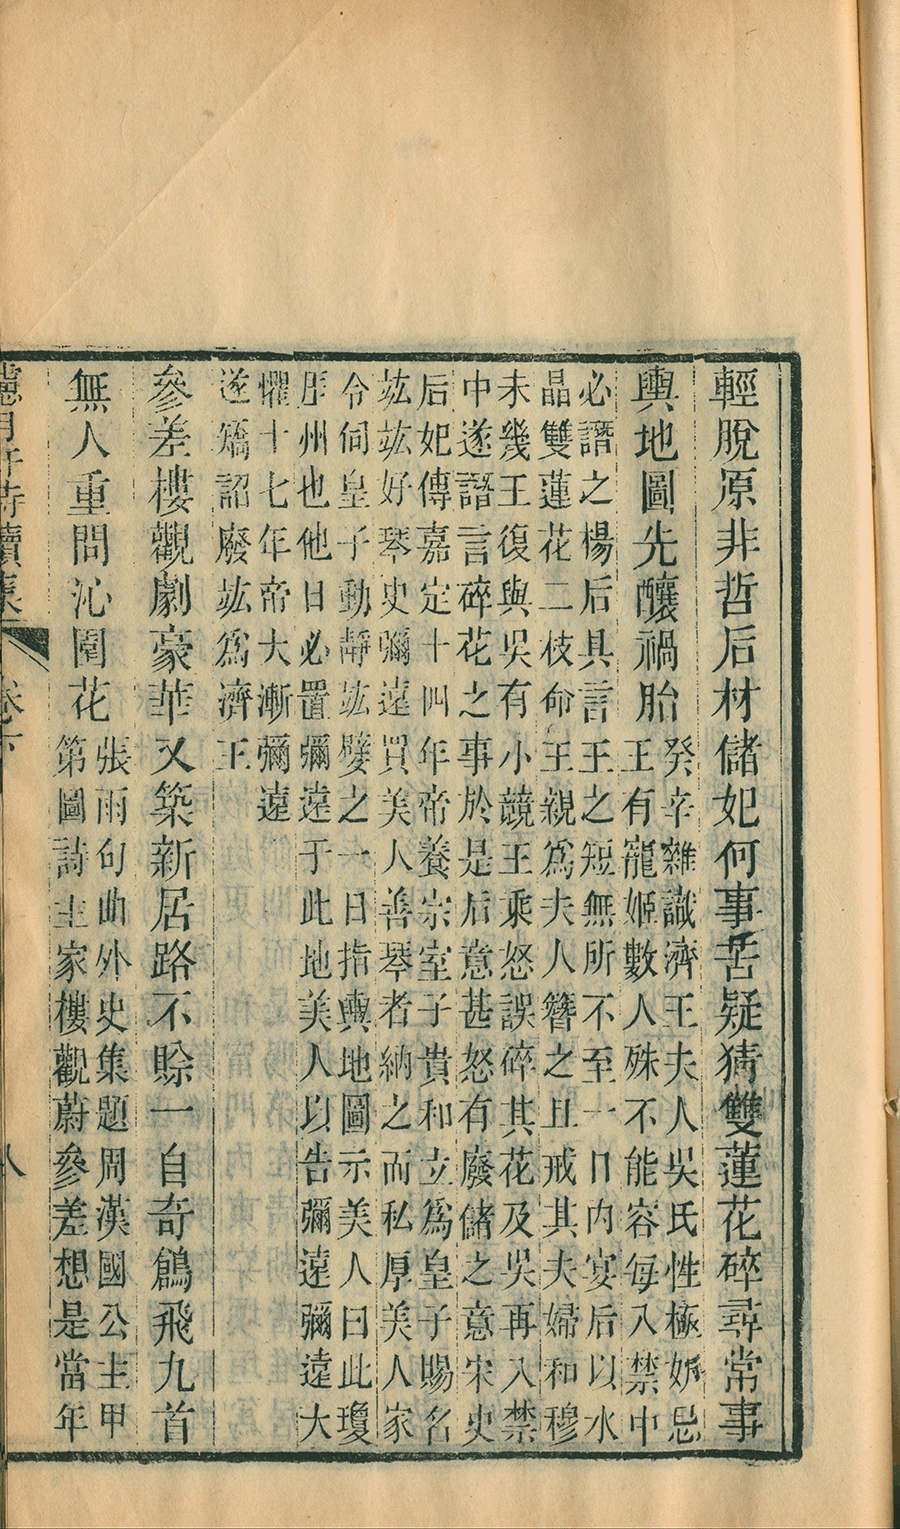 輕脫原非哲后材儲妃何事苦疑猜雙蓮花碎尋常事
輿地圖先釀禍胎
癸辛雜識濟王夫人吳氏性極妒忌
王有寵姬數人殊不能容每入禁中
必譖之楊后具言王之短無所不至一日內宴后以水
晶雙蓮花二枝命王親爲夫人簪之且戒其夫婦和穆
未幾王復與吳有小競王乘怒誤碎其花及吳再入禁
中遂譖言碎花之事於是后意甚怒有廢儲之意宋史
后妃傳嘉定十四年帝養宗室子貴和立爲皇子賜名
竑竑好琴史彌遠買美人善琴者納之而私厚美人家
令伺皇子動靜竑嬖之一日指輿地圖示美人曰此瓊
厓州也他日必置彌遠于此地美人以告彌遠彌遠大
懼十七年帝大漸彌遠
遂矯詔廢竑爲濟王
參差樓觀劇豪華又築新居路不賒一自奇鶬飛九首
無人重問沁園花
張雨句曲外史集題周漢國公主甲
第圖詩主家樓觀蔚參差想是當年
卷下
八